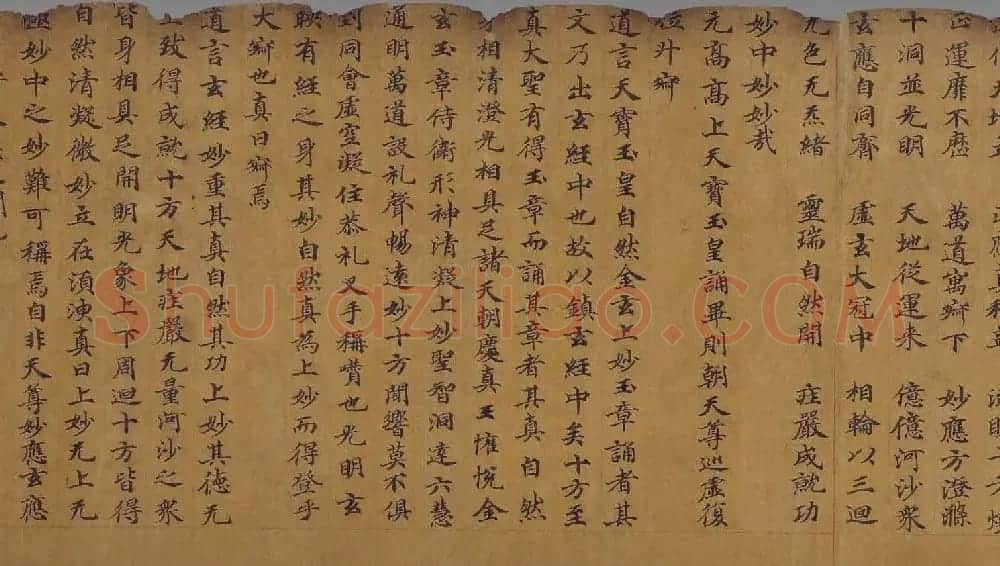 正運靡不應 萬道寓寂下 妙應方澄滌
十洞並光明 天地從運来 億億河沙衆
玄應自同齊 虚玄大冠中 相輪以三迴
无色无炁緒 靈瑞自然開 疰嚴成就功
妙中妙妙哉
元高高上天寶玉皇誦畢則朝天尊巡虚復
位升寂
道言天寶玉皇自然金玄上妙玉章誦者其
文乃出玄經中也故以鎮玄經中矣十方至
真大聖有得玉章而誦其章者其真自然
身相清澄光相具足諸天朝慶真王懽悅金
玄玉章侍衛形神清凝上妙聖智洞達六慧
通明萬道說礼聲暢遠妙十方聞響莫不俱
到同會虚空凝住恭礼叉手稱讚也光明玄
映有經之身其妙自然真為上妙而得登乎
大寂也真曰寂焉
道言玄經妙重其真自然其功上妙其德无
上致得成就十方天地疰嚴无量河沙之衆
皆身相具足開明光象上下周迴十方皆得
自然清凝微妙立在須洩真曰上妙无上无
極妙中之妙難可稱焉自非天尊妙應玄應
Shufaziliao.COM